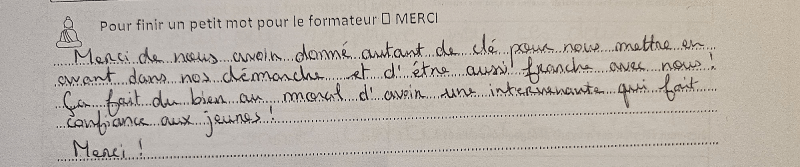 Pour finir un petit mot pour le formateur □ MERCI
Merci de nous avoir donné autant de clé pour nous mettre en
avant dans nos démarche et d'être aussi franche avec nous !
Ça fait du bien au moral d'avoir une intervenante qui fait
confiance aux jeunes !
Merci !